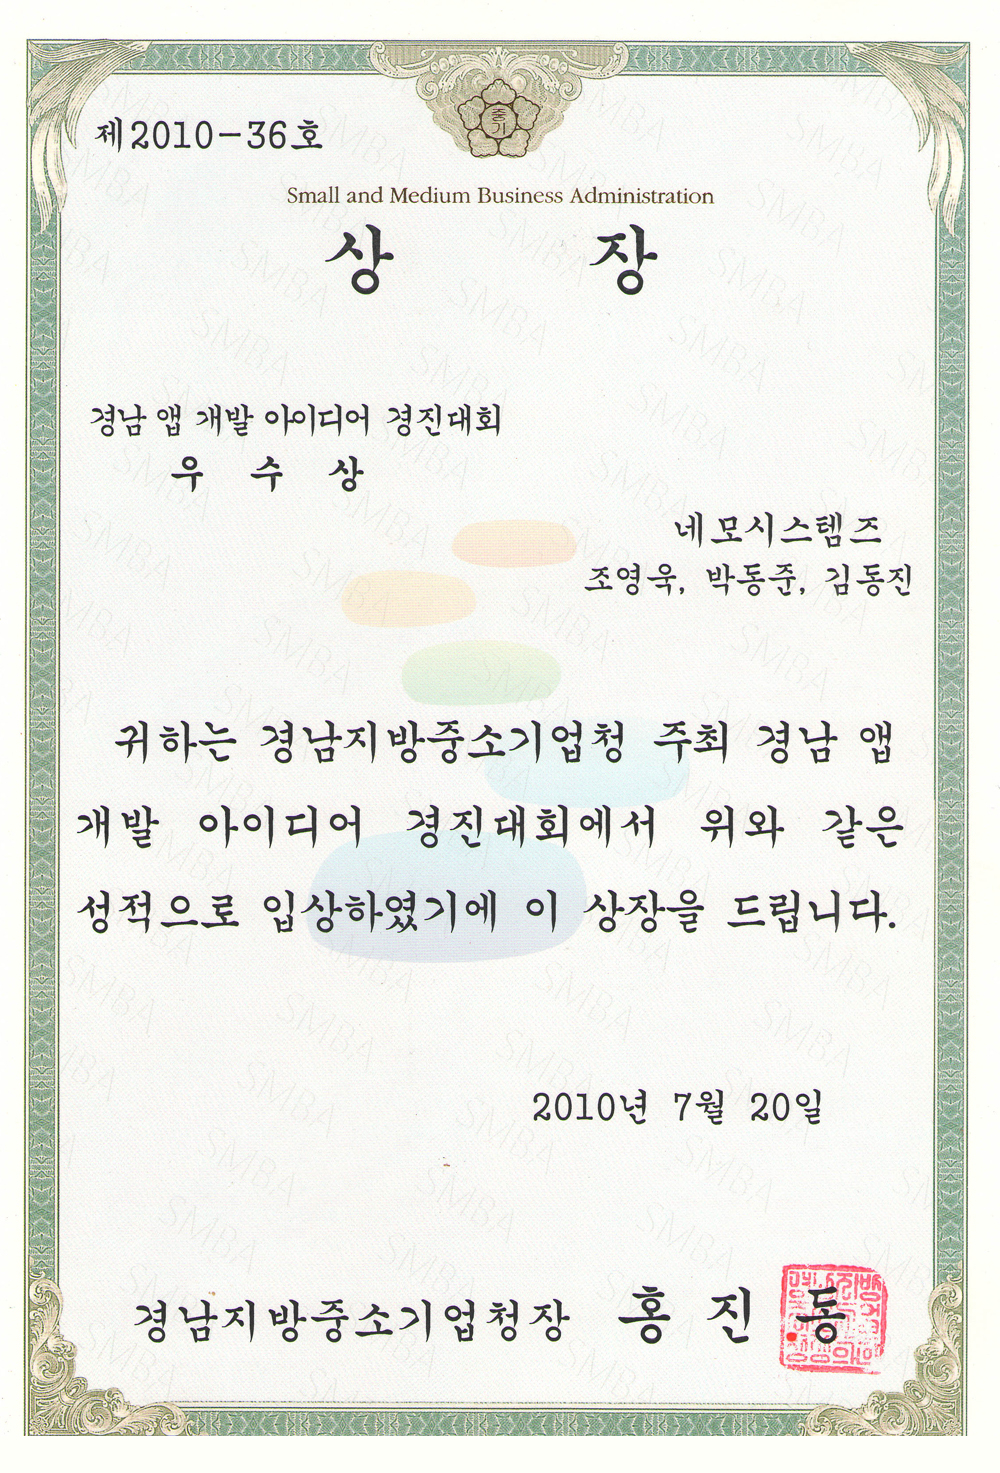 제2010-36호
중기
Small and Medium Business Administration
상 장
경남 앱 개발 아이디어 경진대회
우 수 상
네모시스템즈
조영욱, 박동준, 김동진
귀하는 경남지방중소기업청 주최 경남 앱
개발 아이디어 경진대회에서 위와 같은
성적으로 입상하였기에 이 상장을 드립니다.
2010년 7월 20일
경남지방중소기업청장 홍 진 동
SMBA